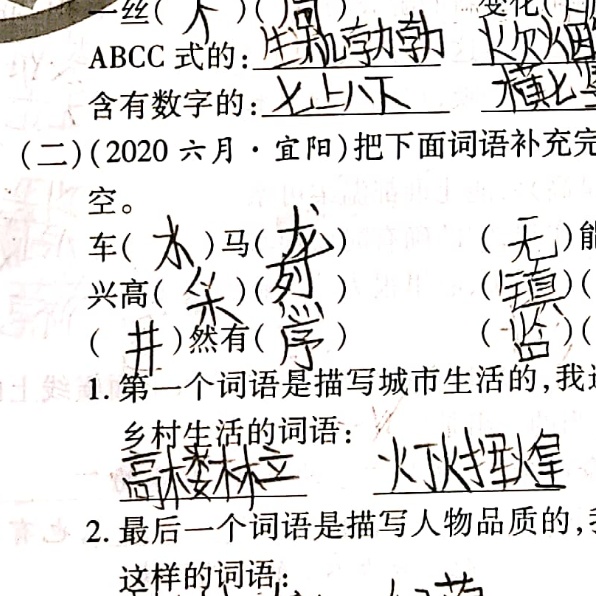 一丝(不)(苟) 变化(
ABCC 式的:生机勃勃 火欠烟
含有数字的:七上八下 横七竖
(二)(2020 六月·宜阳)把下面词语补充完
空。
车(水)马(龙) (无)能
兴高(采)(烈) (镇)(
(井)然有(序) (监)(
1. 第一个词语是描写城市生活的,我还
乡村生活的词语:
高楼林立 灯火辉煌
2. 最后一个词语是描写人物品质的,我
这样的词语: